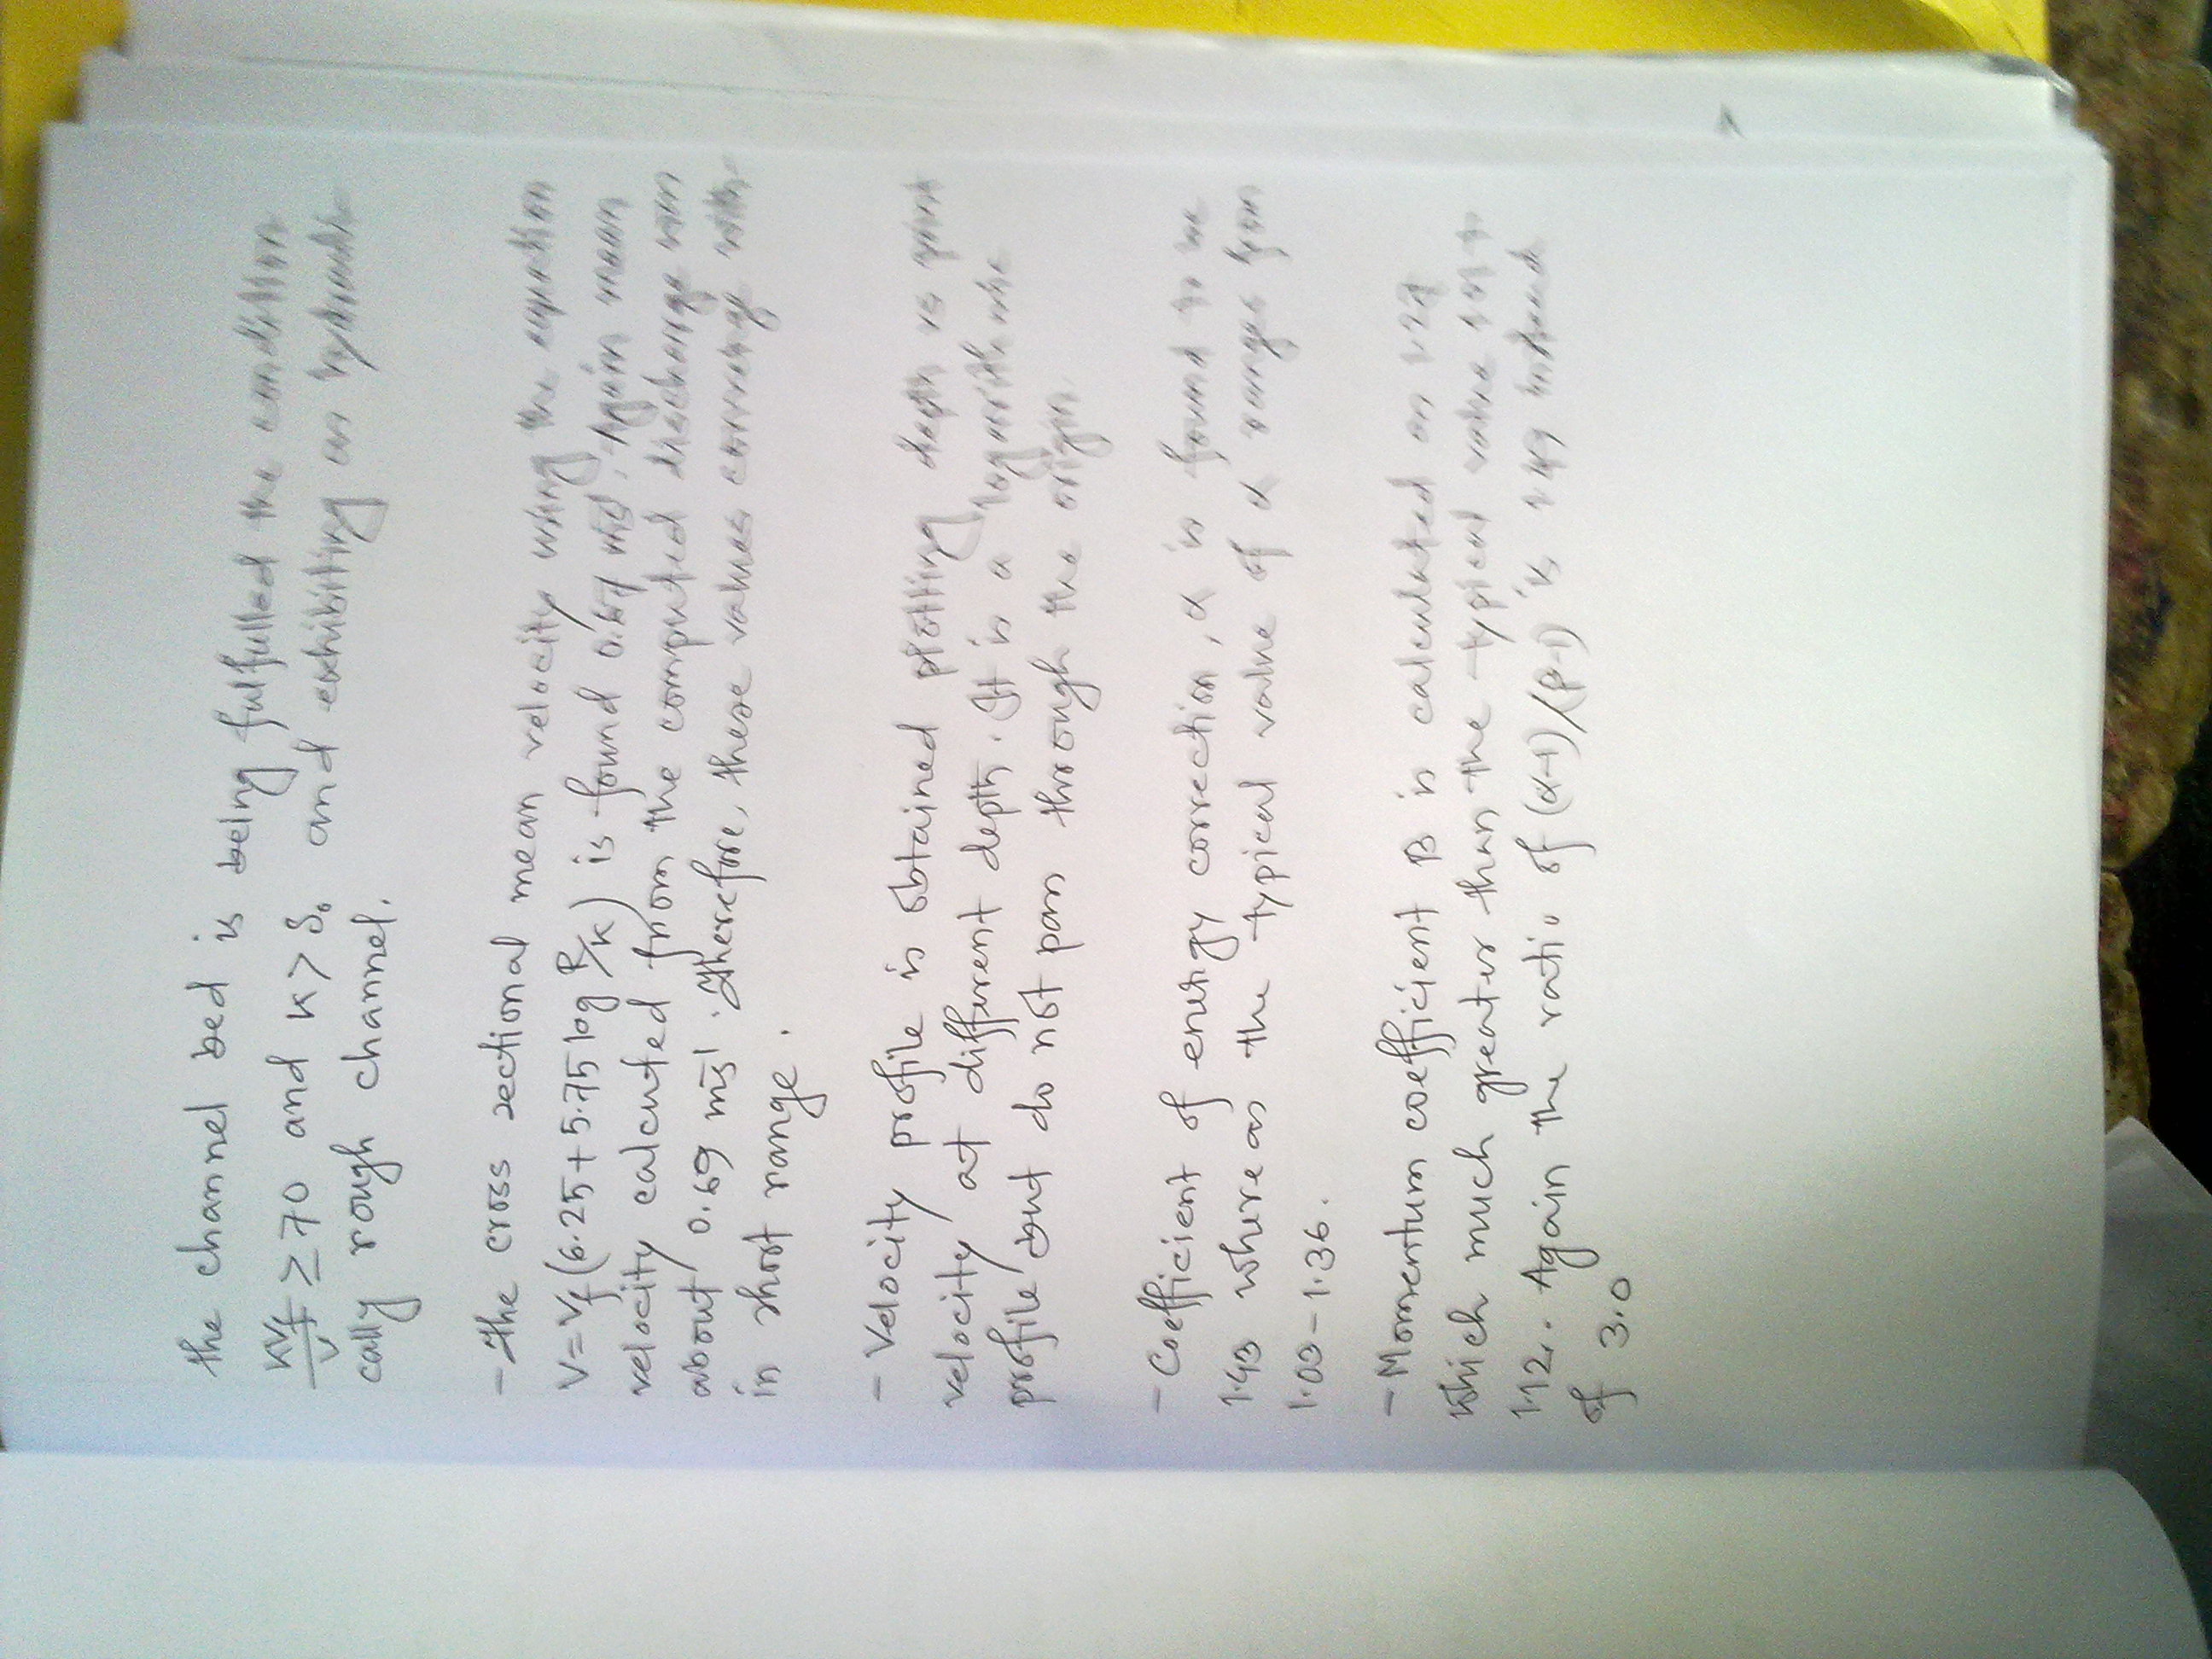 the channel bed is being fulfulled the condition
KVf/ν ≥ 70 and K > δ₀ and exhibiting an hydrauli-
cally rough channel.
- The cross sectional mean velocity using the equation
V = Vf (6.25 + 5.75 log R/K) is found 0.67 ms⁻¹. Again mean
velocity calcuted from the computed discharge was
about 0.69 ms⁻¹. Therefore, these values converge with-
in short range.
- Velocity profile is obtained plotting depth vs point
velocity at different depth. It is a logarithmic
profile but do not pass through the origin.
- Coefficient of energy correction, α is found to be
1.43 where as the typical value of α ranges from
1.03 - 1.36.
- Momentum coefficient β is calculated as
which much greater than the typical value to
1.12. Again the ratio of (α-1)/(β-1) is 1.49 instead
of 3.0